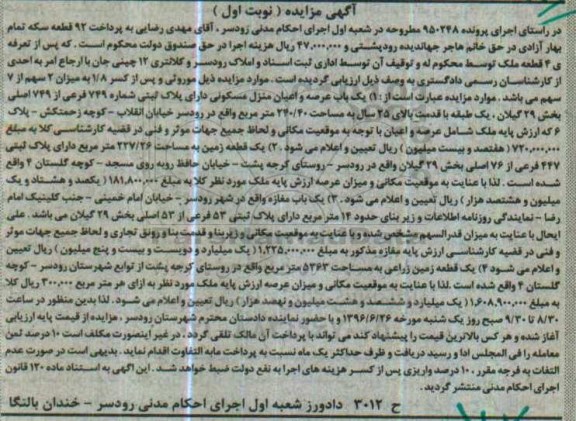 آگهی مزایده ( نوبت اول )
در راستای اجرای پرونده ۹۵۰۲۴۸ مطروحه در شعبه اول اجرای احکام مدنی رودسر، آقای مهدی رضایی به پرداخت ۹۲ قطعه سکه تمام
بهار آزادی در حق خانم هاجر جهاندیده رودپشتی و ۴۷٫۰۰۰٫۰۰۰ ریال هزینه اجرا در حق صندوق دولت محکوم است. که پس از تعرفه
ی ۴ قطعه ملک توسط محکوم له و توقیف آن توسط اداری ثبت اسناد و املاک رودسر و کلانتری ۱۲ چینی جان با ارجاع امر به احدی
از کارشناسان رسمی دادگستری به وصف ذیل ارزیابی گردیده است. موارد مزایده ذیل موروثی و پس از کسر ۱/۸ به میزان ۲ سهم از ۷
سهم می باشد. موارد مزایده عبارت است از: ۱) یک باب عرصه و اعیان منزل مسکونی دارای پلاک ثبتی شماره ۷۴۹ فرعی از ۷۴۹ اصلی
بخش ۲۹ گیلان. یک طبقه با قدمت بالای ۲۵ سال به مساحت ۲۴۰/۴۰ متر مربع واقع در رودسر خیابان انقلاب - کوچه زحمتکش - پلاک
۶ که ارزش پایه ملک شامل عرصه و اعیان با توجه به موقعیت مکانی و لحاظ جمیع جهات موثر و فنی در قضیه کارشناسی کلا به مبلغ
۷۲۰٫۰۰۰٫۰۰۰ ( هفتصد و بیست میلیون ) ریال تعیین و اعلام می شود. ۲) یک قطعه زمین به مساحت ۲۲۷/۲۶ متر مربع دارای پلاک ثبتی
۴۴۷ فرعی از ۷۶ اصلی بخش ۲۹ گیلان واقع در رودسر - روستای گرجه پشت - خیابان حافظ روبه روی مسجد - کوچه گلستان ۴ واقع
شده است. لذا با عنایت به موقعیت مکانی و میزان عرصه ارزش پایه ملک مورد نظر کلا به مبلغ ۱۸۱٫۸۰۰٫۰۰۰ ( یکصد و هشتاد و یک
میلیون و هشتصد هزار ) ریال تعیین و اعلام می شود. ۳) یک باب مغازه واقع در شهر رودسر - خیابان امام خمینی - جنب کلینیک امام
رضا - نمایندگی روزنامه اطلاعات و زیر بنای حدود ۱۴ متر مربع دارای پلاک ثبتی ۵۳ فرعی از ۵۳ اصلی بخش ۲۹ گیلان می باشد. علی
ایحال با عنایت به میزان قدرالسهم مشخص شده و با عنایت به موقعیت مکانی و زیربنا و قدمت بنا و رونق تجاری و لحاظ جمیع جهات موثر
و فنی در قضیه کارشناسی ارزش پایه مغازه مذکور به مبلغ ۱٫۲۲۵٫۰۰۰٫۰۰۰ ( یک میلیارد و دویست و بیست و پنج میلیون ) ریال تعیین
و اعلام می شود ۴) یک قطعه زمین زراعی به مساحت ۵۳۶۳ متر مربع واقع در روستای گرجه پشت از توابع شهرستان رودسر - کوچه
گلستان ۴ واقع شده است. لذا با عنایت به موقعیت مکانی و میزان عرصه ارزش پایه ملک مورد نظر به ازای هر متر مربع ۳۰۰٫۰۰۰ ریال کلا
به مبلغ ۱٫۶۰۸٫۹۰۰٫۰۰۰ ( یک میلیارد و ششصد و هشت میلیون و نهصد هزار ) ریال تعیین و اعلام می شود. لذا بدین منظور در ساعت
۸/۳۰ تا ۹/۳۰ صبح روز یک شنبه مورخه ۱۳۹۶/۶/۲۶ و با حضور نماینده دادستان محترم شهرستان رودسر، مزایده از قیمت پایه ارزیابی
آغاز شده و هر کس بالاترین قیمت را پیشنهاد کند می تواند با پرداخت آن مالک تلقی گردد. در غیر اینصورت مکلف است ۱۰ درصد ثمن
معامله را فی المجلس ادا و رسید دریافت و ظرف حداکثر یک ماه نسبت به پرداخت مابه التفاوت اقدام نماید. بدیهی است در صورت عدم
التفات به فرجه مقرر، ۱۰ درصد واریزی پس از کسر هزینه های اجرا به نفع دولت ضبط خواهد شد. این آگهی به استناد ماده ۱۲۰ قانون
اجرای احکام مدنی منتشر گردید.
ح ۳۰۱۲ دادورز شعبه اول اجرای احکام مدنی رودسر - خندان بالنگا